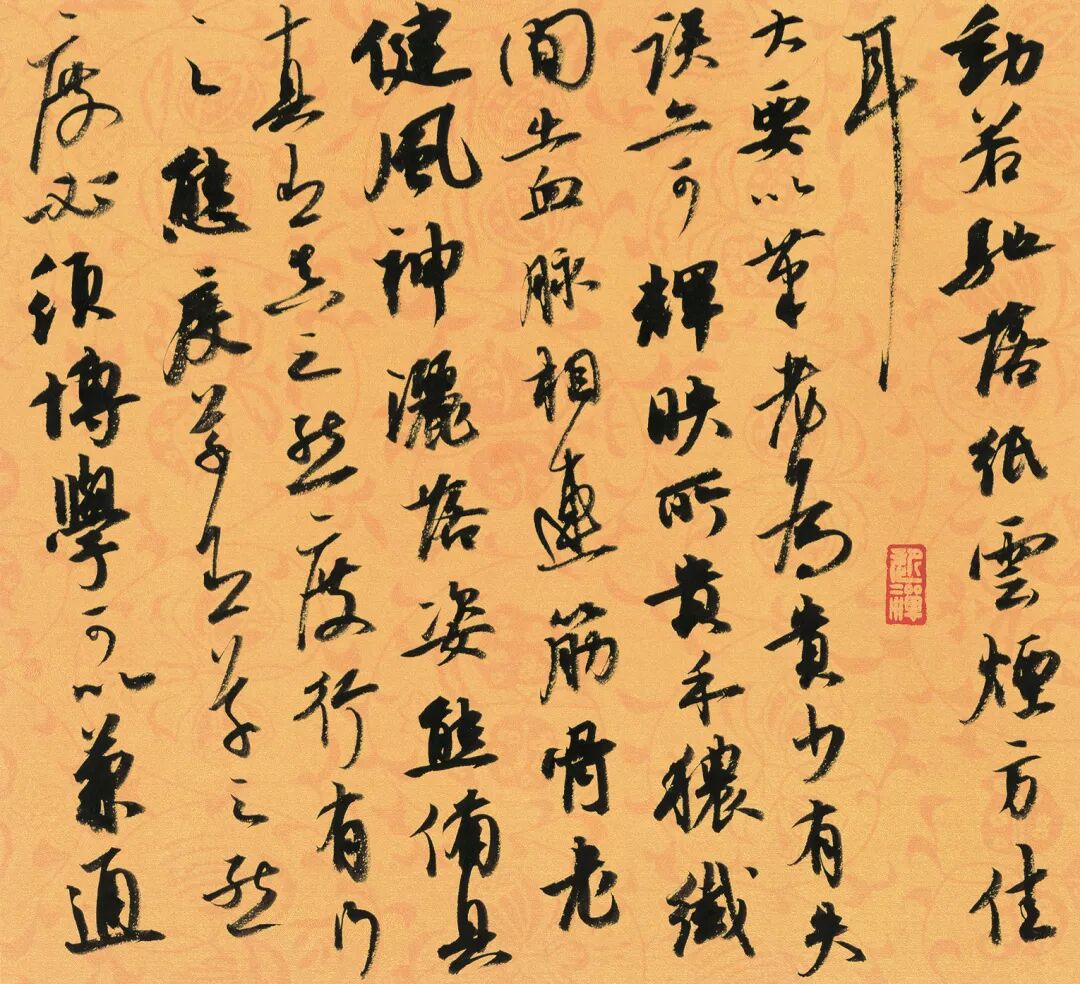 動若馳落紙雲煙方佳
耳
大要以筆老為貴少有失
誤亦可輝映所貴乎穠纖
間出血脉相連筋骨老
健風神灑落姿態備具
真有真之態度行有行
之態度草有草之態
度必須博學可以兼通